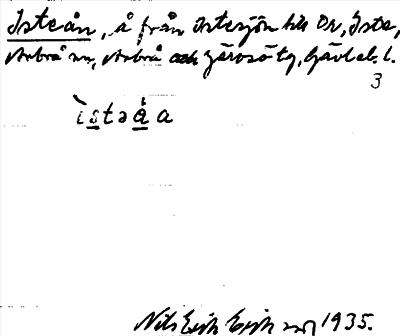 Isteån, å från Istesjön till On, Iste,
Arbrå sn, Arbrå och Järvsö tg, Gävleb. l.
3
ìstəå̀a
Nils Erik Eriksson 1935.